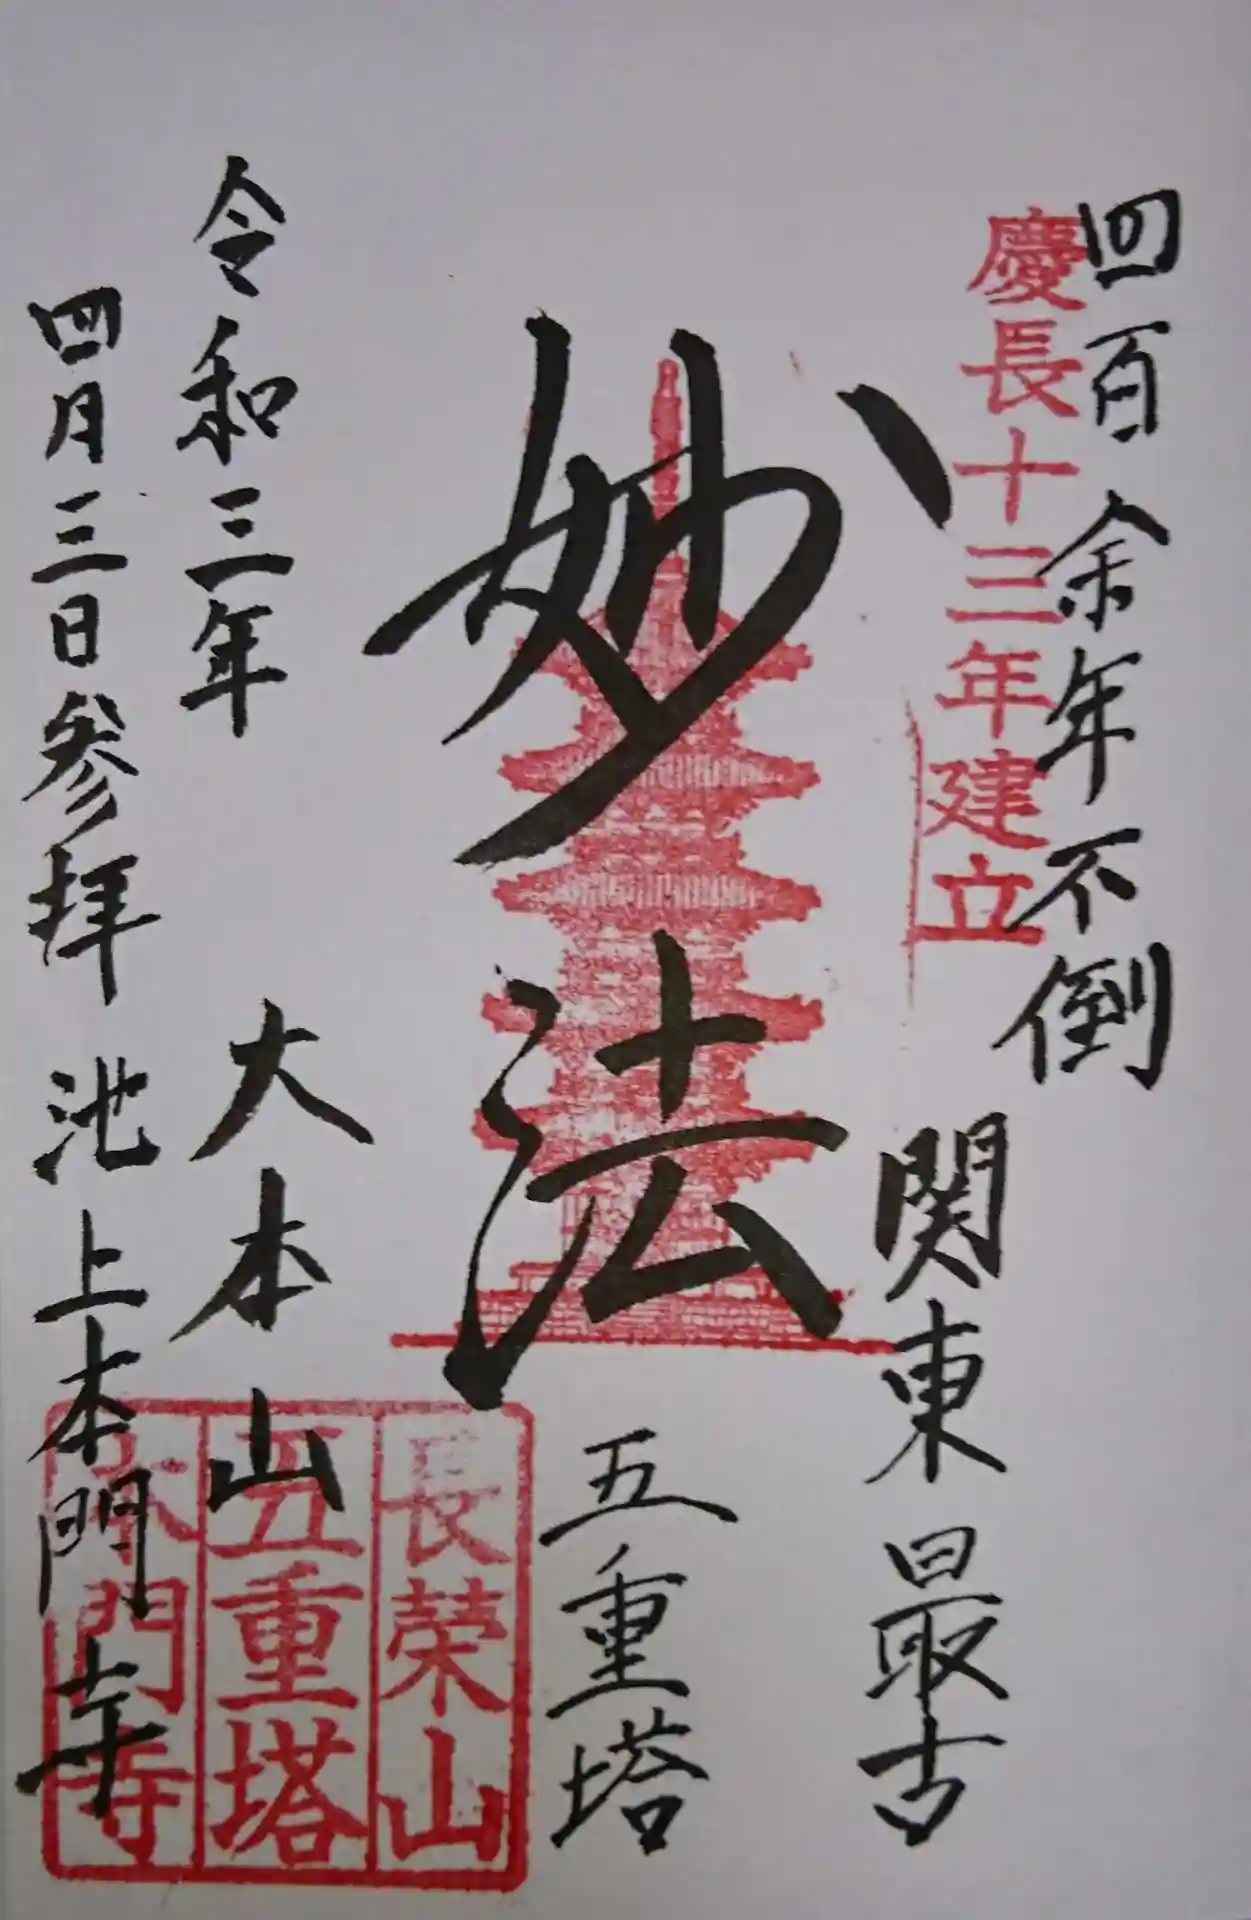 四百余年不倒
慶長十三年建立
関東最古
妙法
五重塔
令和三年
四月三日参拝
大本山
池上本門寺
長榮山
五重塔
本門寺